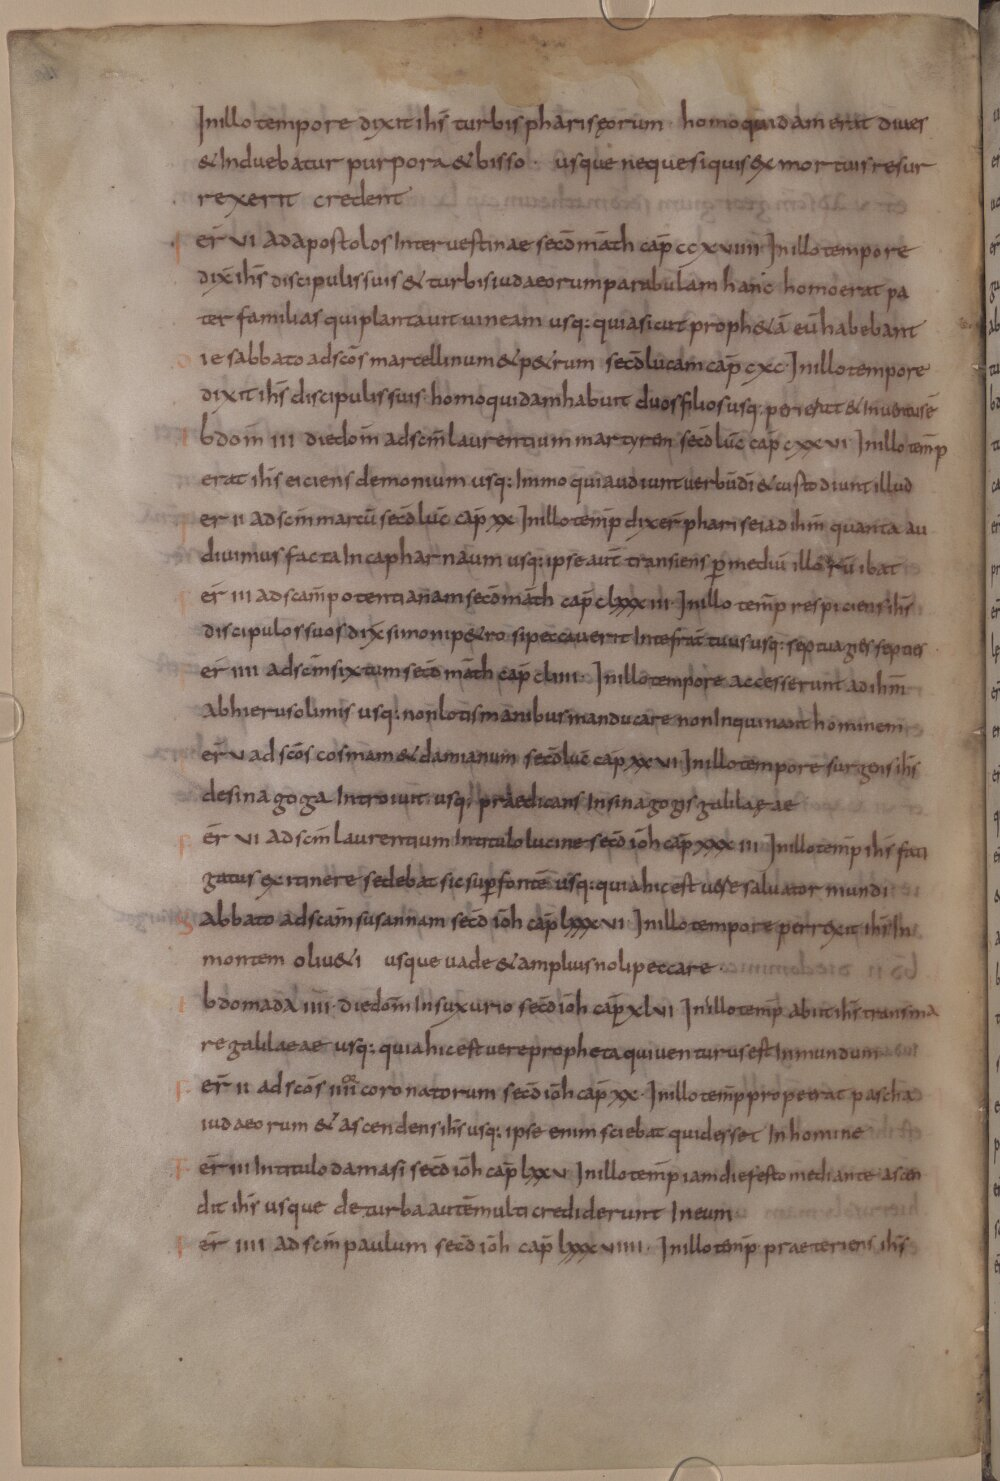 Inillo tempore dixit ihs turbis phariseorum · homo quidam erat diues
& Induebatur purpora & bisso · usque neque si quis ex mortuis resur
rexerit credent
F er̄ VI Ad apostolos Inter uestinae secd̄ math cap̄ ccxviiii Inillo tempore
dix̄ ihs̄ discipulis suis & turbis iudaeorum parabulam hanc homo erat pa
ter familias qui plantauit uineam usq: quia sicut proph&ā eū habebant
D ie sabbato ad scōs marcellinum & p&rum secd̄ lucam cap̄ cxc Inillo tempore
dixit ihs̄ discipulis suis homo quidam habuit duos filios usq: perierat & Inuentus ē
E bdom̄ III die dom̄ ad scm̄ laurentium martyrem secd̄ luc̄ cap̄ cxxvi Inillo temp̄
erat ihs̄ eiciens demonium usq: Immo qui audiunt uerbū dī & custodiunt illud
F er̄ II ad scm̄ marcū secd̄ luc̄ cap̄ xx Inillo temp̄ dixer̄ pharisei ad ihm̄ quanta au
diuimus facta In capharnaum usq: ipse aut̄ transiens p̄ mediū illorū ibat
F er̄ III ad scam̄ potentianam secd̄ math cap̄ clxxxiii Inillo temp̄ respiciens ihs̄
discipulos suos dix̄ simoni p&ro si peccauerit In te frāt tuus usq: septuagies septies
F er̄ IIII ad scm̄ sixtum secd̄ math cap̄ cliiii Inillo tempore accesserunt ad ihm̄
ab hierusolimis usq: non lotis manibus manducare non Inquinant hominem
F er̄ V ad scōs cosmam & damianum secd̄ luc̄ cap̄ xxvi Inillo tempore surgens ihs̄
de sinagoga Introiuit usq: praedicans In sinagogis galilaeae
F er̄ VI Ad scm̄ laurentium In titulo lucine secd̄ ioh̄ cap̄ xxxiii Inillo temp̄ ihs̄ fati
gatus ex itinere sedebat sic sup̄ fontē usq: quia hic est uere saluator mundi
S abbato ad scam̄ susannam secd̄ ioh̄ cap̄ lxxxvi Inillo tempore perrexit ihs̄ In
montem oliu&i usque uade & amplius noli peccare
E bdomada IIII die dom̄ In suxurio secd̄ ioh̄ cap̄ xlvi Inillo temp̄ abiit ihs̄ trans ma
re galilaeae usq: quia hic est uere propheta qui uenturus est In mundum
F er̄ II ad scōs IIII coronatorum secd̄ ioh̄ cap̄ xx · Inillo temp̄ prope erat pascha
iudaeorum & ascendens ihs̄ usq: ipse enim sciebat quid esset In homine
F er̄ III In titulo damasi secd̄ ioh̄ cap̄ lxxv Inillo temp̄ iam die festo mediante ascen
dit ihs̄ usque de turba autē multi crediderunt In eum
F er̄ IIII ad scm̄ paulum secd̄ ioh̄ cap̄ lxxxviiii · Inillo temp̄ praeteriens ihs̄